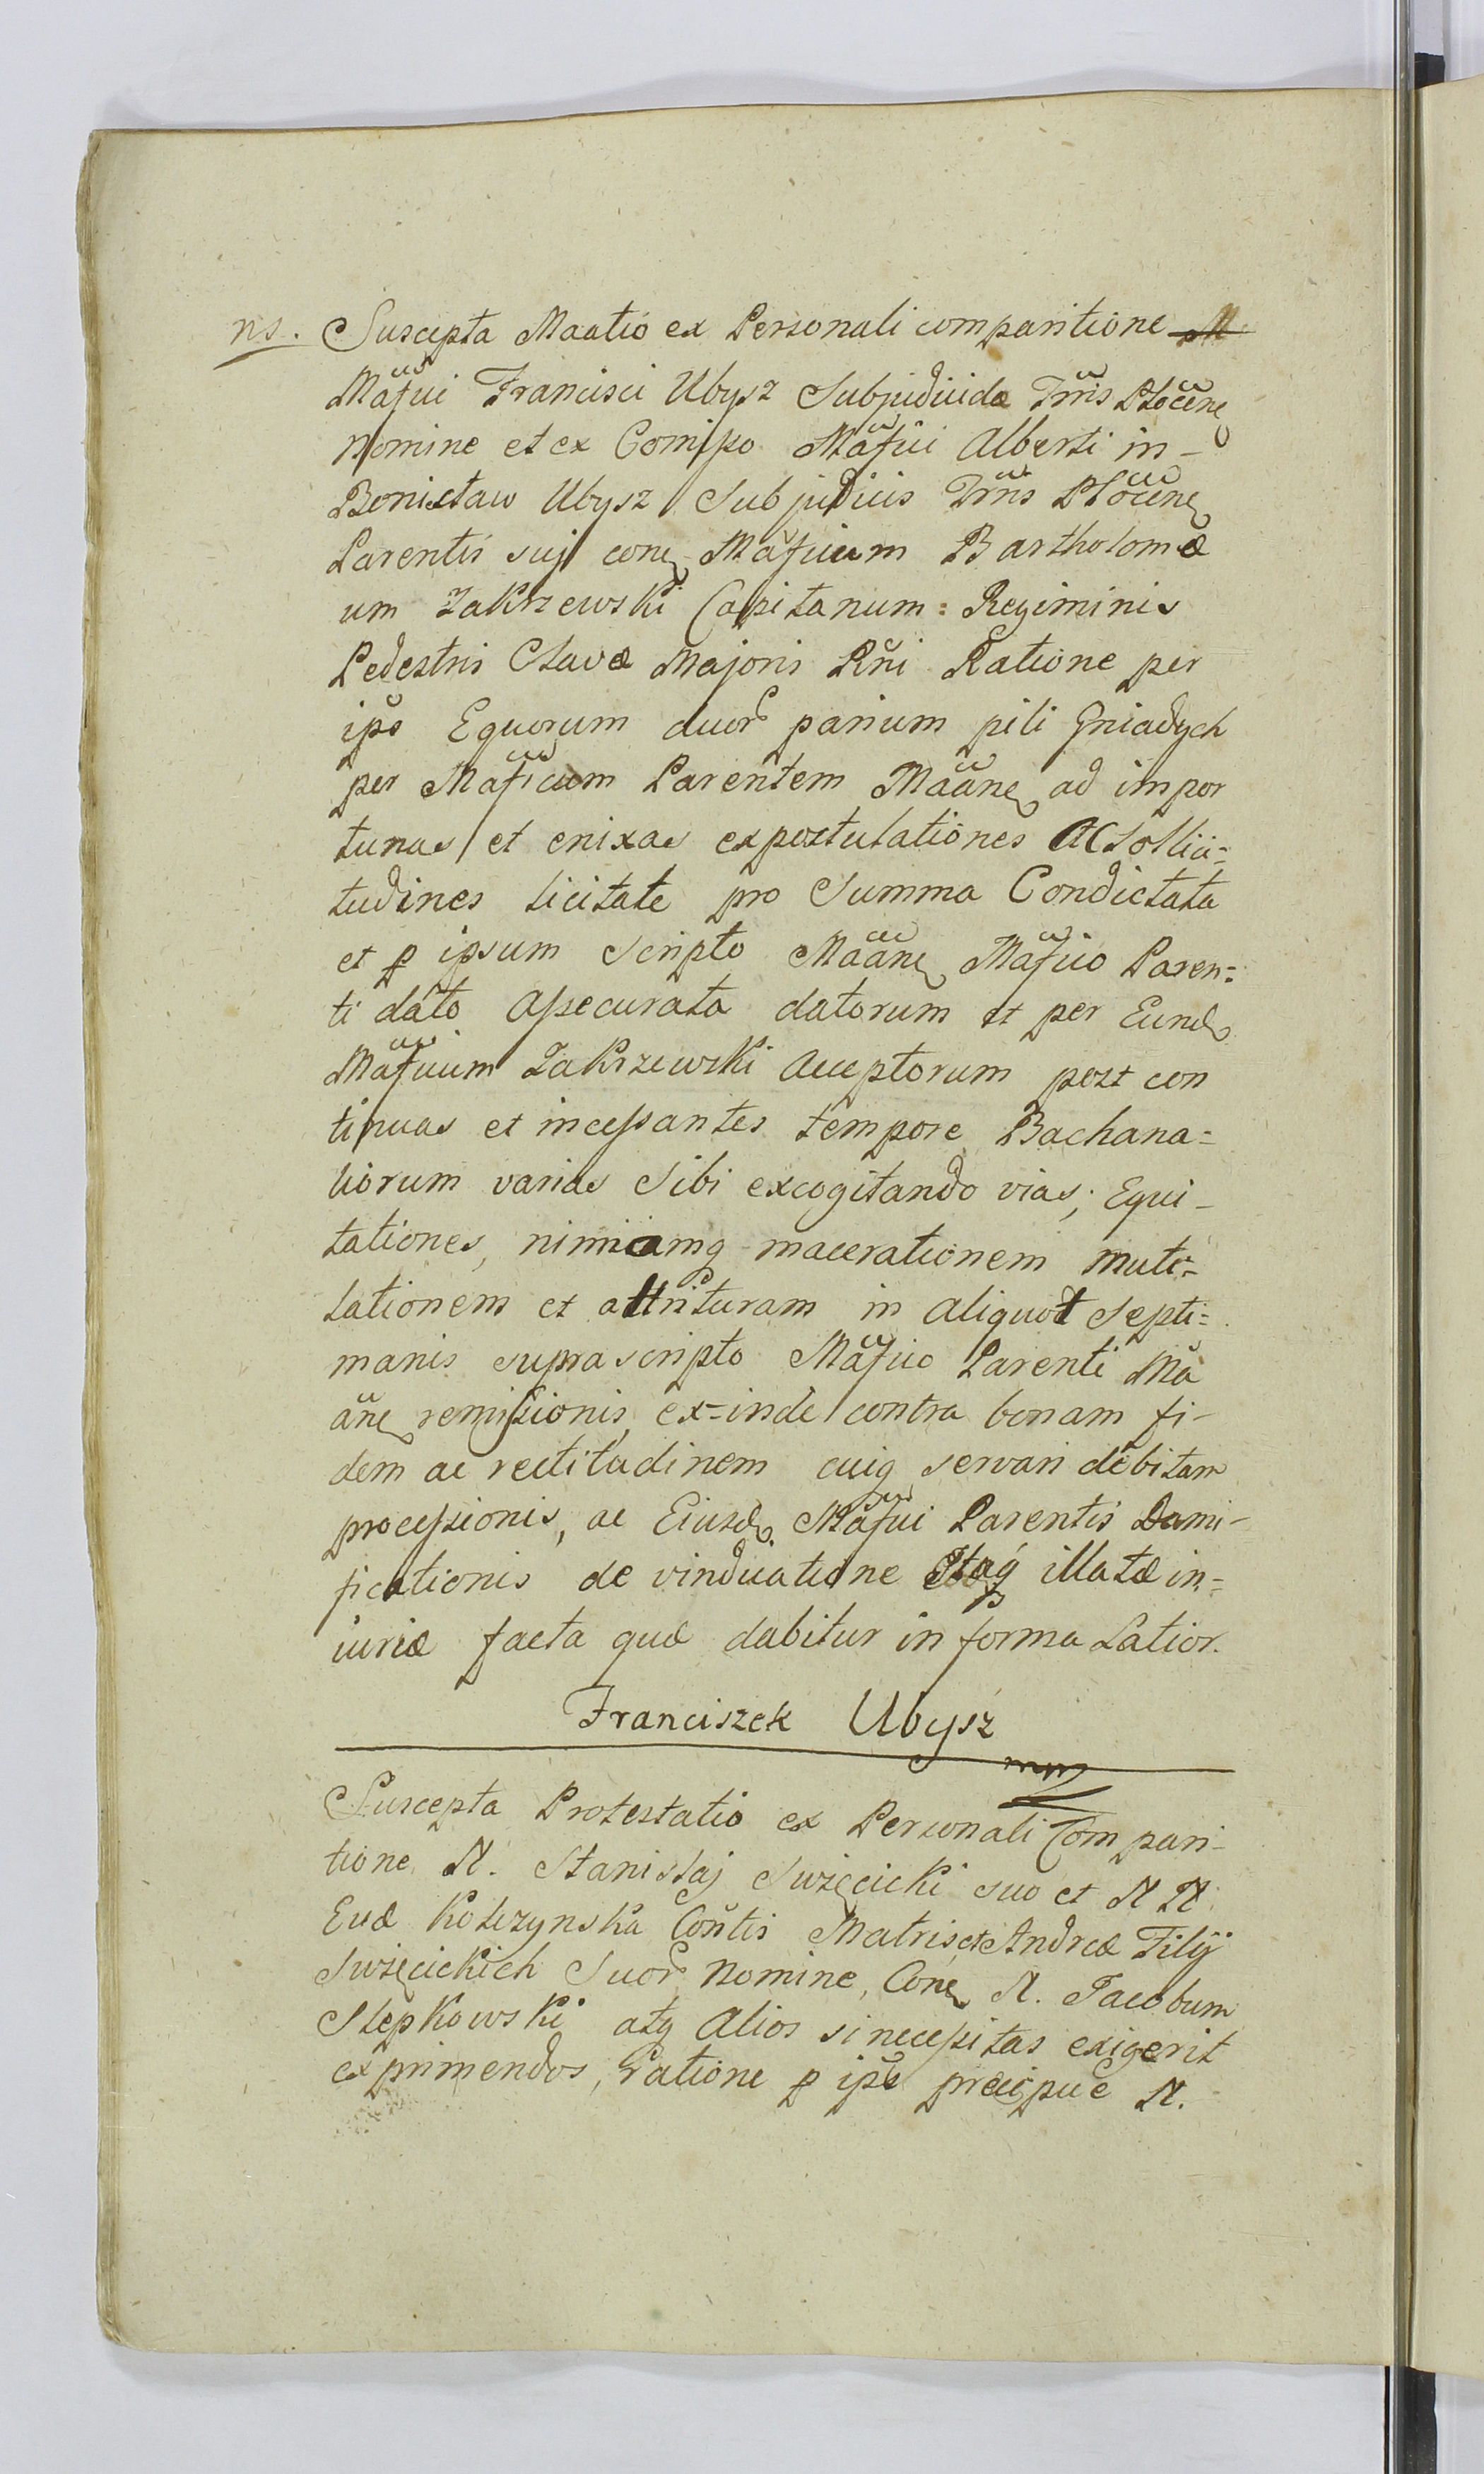 ns. Suscepta Maatio ex Personali comparitione M
Mäfui Francisci Ubysz Subjudicidæ Trris Ploccne
Nomine et ex Comisso Mäfui Alberti in-
Bonisław Ubysz Subjudicis Trris Ploccne
Parentis suj cone Mäfuum Bartholomæ
um Zakrzewski Capitanum = Regiminis
Pedestris Clavæ Majoris Rni Ratione per
ips Equorum duor parium pili gniadych
per Mäficum Parentem Mäane ad impor
tunas et enixas expostulationes ac sollici=
tudines licitate pro Summa Condictata
et p ipsum Scripto Mäane Mäfico Paren=
ti dato assecurata datorum et per Eund
Mäfuum Zakrzewski acceptorum post con
tinuas et incessantes tempore Bachana=
liorum varias sibi excogitando vias, Equi-
tationes, nimiamq macerationem muti=
lationem et attrituram in aliquot septi=
manis suprascripto Mäfuo Parenti Mä
ane remissionis, ex=inde contra bonam fi-
dem ac rectitudinem cuiq servari debitam
processionis, ac Eiusd Mäfui Parentis Dami-
ficationis de vindicatione illatæ in=
iuriæ facta quæ dabitur in forma Latior.
Franciszek Ubysz
mp
Suscepta Protestatio ex Personali Compari-
tione N. Stanislaj Swięcicki suo et N N.
Evæ Kolczynska Contis Matris et Andreæ Filij
Swięcickich Suor Nomine, Cone N. Jacobum
Stepkowski atq Alios si necessitas exigerit
exprimendos, Ratione p ips præcipue N.